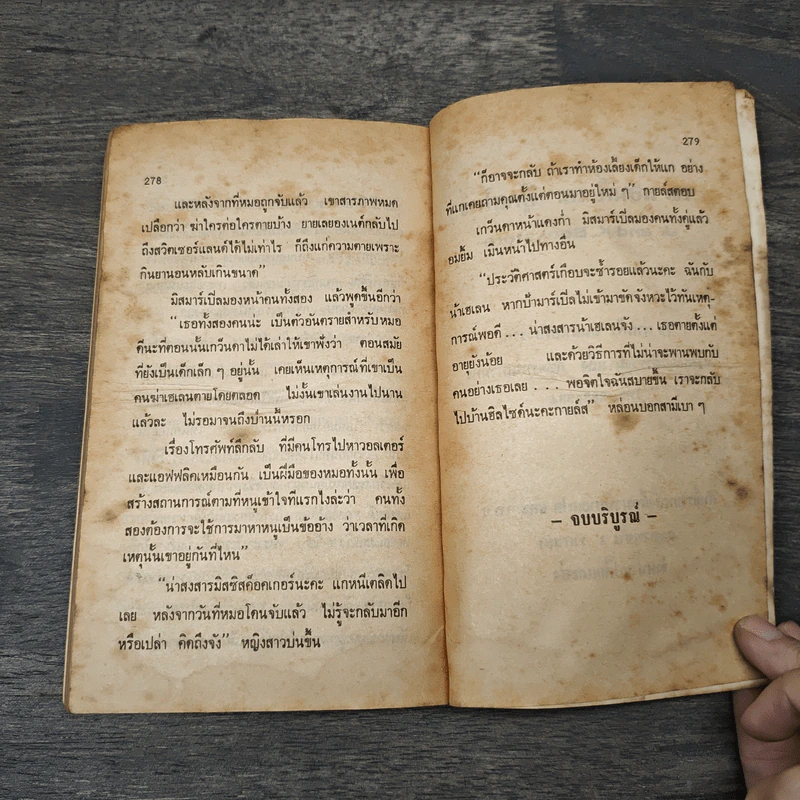 278
และหลังจากที่หมอถูกจับแล้ว เขาสารภาพหมด
เปลือกว่า ฆ่าใครต่อใครตายบ้าง ยายเลยองเนต์กลับไป
ถึงสวิตเซอร์แลนด์ได้ไม่เท่าไร ก็ถึงแก่ความตายเพราะ
กินยานอนหลับเกินขนาด”
มิสมาร์เปิ่ลมองหน้าคนทั้งสอง แล้วพูดขึ้นอีกว่า
“เธอทั้งสองคนน่ะ เป็นตัวอันตรายสำหรับหมอ
ดีนะที่ตอนนั้นเกว็นดาไม่ได้เล่าให้เขาฟังว่า ตอนสมัย
ที่ยังเป็นเด็กเล็ก ๆ อยู่นั้น เคยเห็นเหตุการณ์ที่เขาเป็น
คนฆ่าเฮเลนตายโดยตลอด ไม่งั้นเขาเล่นงานไปนาน
แล้วละ ไม่รอมาจนถึงป่านนี้หรอก
เรื่องโทรศัพท์ลึกลับ ที่มีคนโทรไปหาวอลเตอร์
และแอฟฟลิคเหมือนกัน เป็นฝีมือของหมอทั้งนั้น เพื่อ
สร้างสถานการณ์ตามที่หนูเข้าใจที่แรกไงล่ะว่า คนทั้ง
สองต้องการจะใช้การมาหาหนูเป็นข้ออ้าง ว่าเวลาที่เกิด
เหตุนั้นเขาอยู่กันที่ไหน”
“น่าสงสารมิสซิสค็อคเกอร์นะคะ แกหนีเตลิดไป
เลย หลังจากวันที่หมอโดนจับแล้ว ไม่รู้จะกลับมาอีก
หรือเปล่า คิดถึงจัง” หญิงสาวบ่นขึ้น
279
“ก็อาจจะกลับ ถ้าเราทำห้องเลี้ยงเด็กให้แก อย่าง
ที่แกเคยถามคุณตั้งแต่ตอนมาอยู่ใหม่ ๆ” กายล์สตอบ
เกว็นดาหน้าแดงก่ำ มิสมาร์เปิ่ลมองคนทั้งคู่แล้ว
อมยิ้ม เมินหน้าไปทางอื่น
“ประวัติศาสตร์เกือบจะซ้ำรอยแล้วนะคะ ฉันกับ
น้าเฮเลน หากป้ามาร์เปิ่ลไม่เข้ามาขัดจังหวะไว้ทันเหตุ-
การณ์พอดี . . . น่าสงสารน้าเฮเลนจัง . . . เธอตายตั้งแต่
อายุยังน้อย และด้วยวิธีการที่ไม่น่าจะพานพบกับ
คนอย่างเธอเลย . . . พอจิตใจฉันสบายขึ้น เราจะกลับ
ไปบ้านฮิลไซด์นะคะกายล์ส” หล่อนบอกสามีเบา ๆ
– จบบริบูรณ์ –